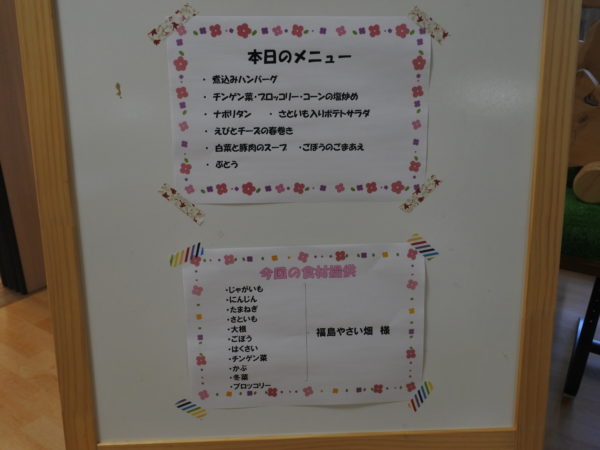 本日のメニュー
・煮込みハンバーグ
・チンゲン菜・ブロッコリー・コーンの塩炒め
・ナポリタン ・さといも入りポテトサラダ
・えびとチーズの春巻き
・白菜と豚肉のスープ ・ごぼうのごまあえ
・ぶどう
今回の食材提供
・じゃがいも
・にんじん
・たまねぎ
・さといも
・大根
・ごぼう
・はくさい
・チンゲン菜
・かぶ
・冬菜
・ブロッコリー
福島やさい畑 様